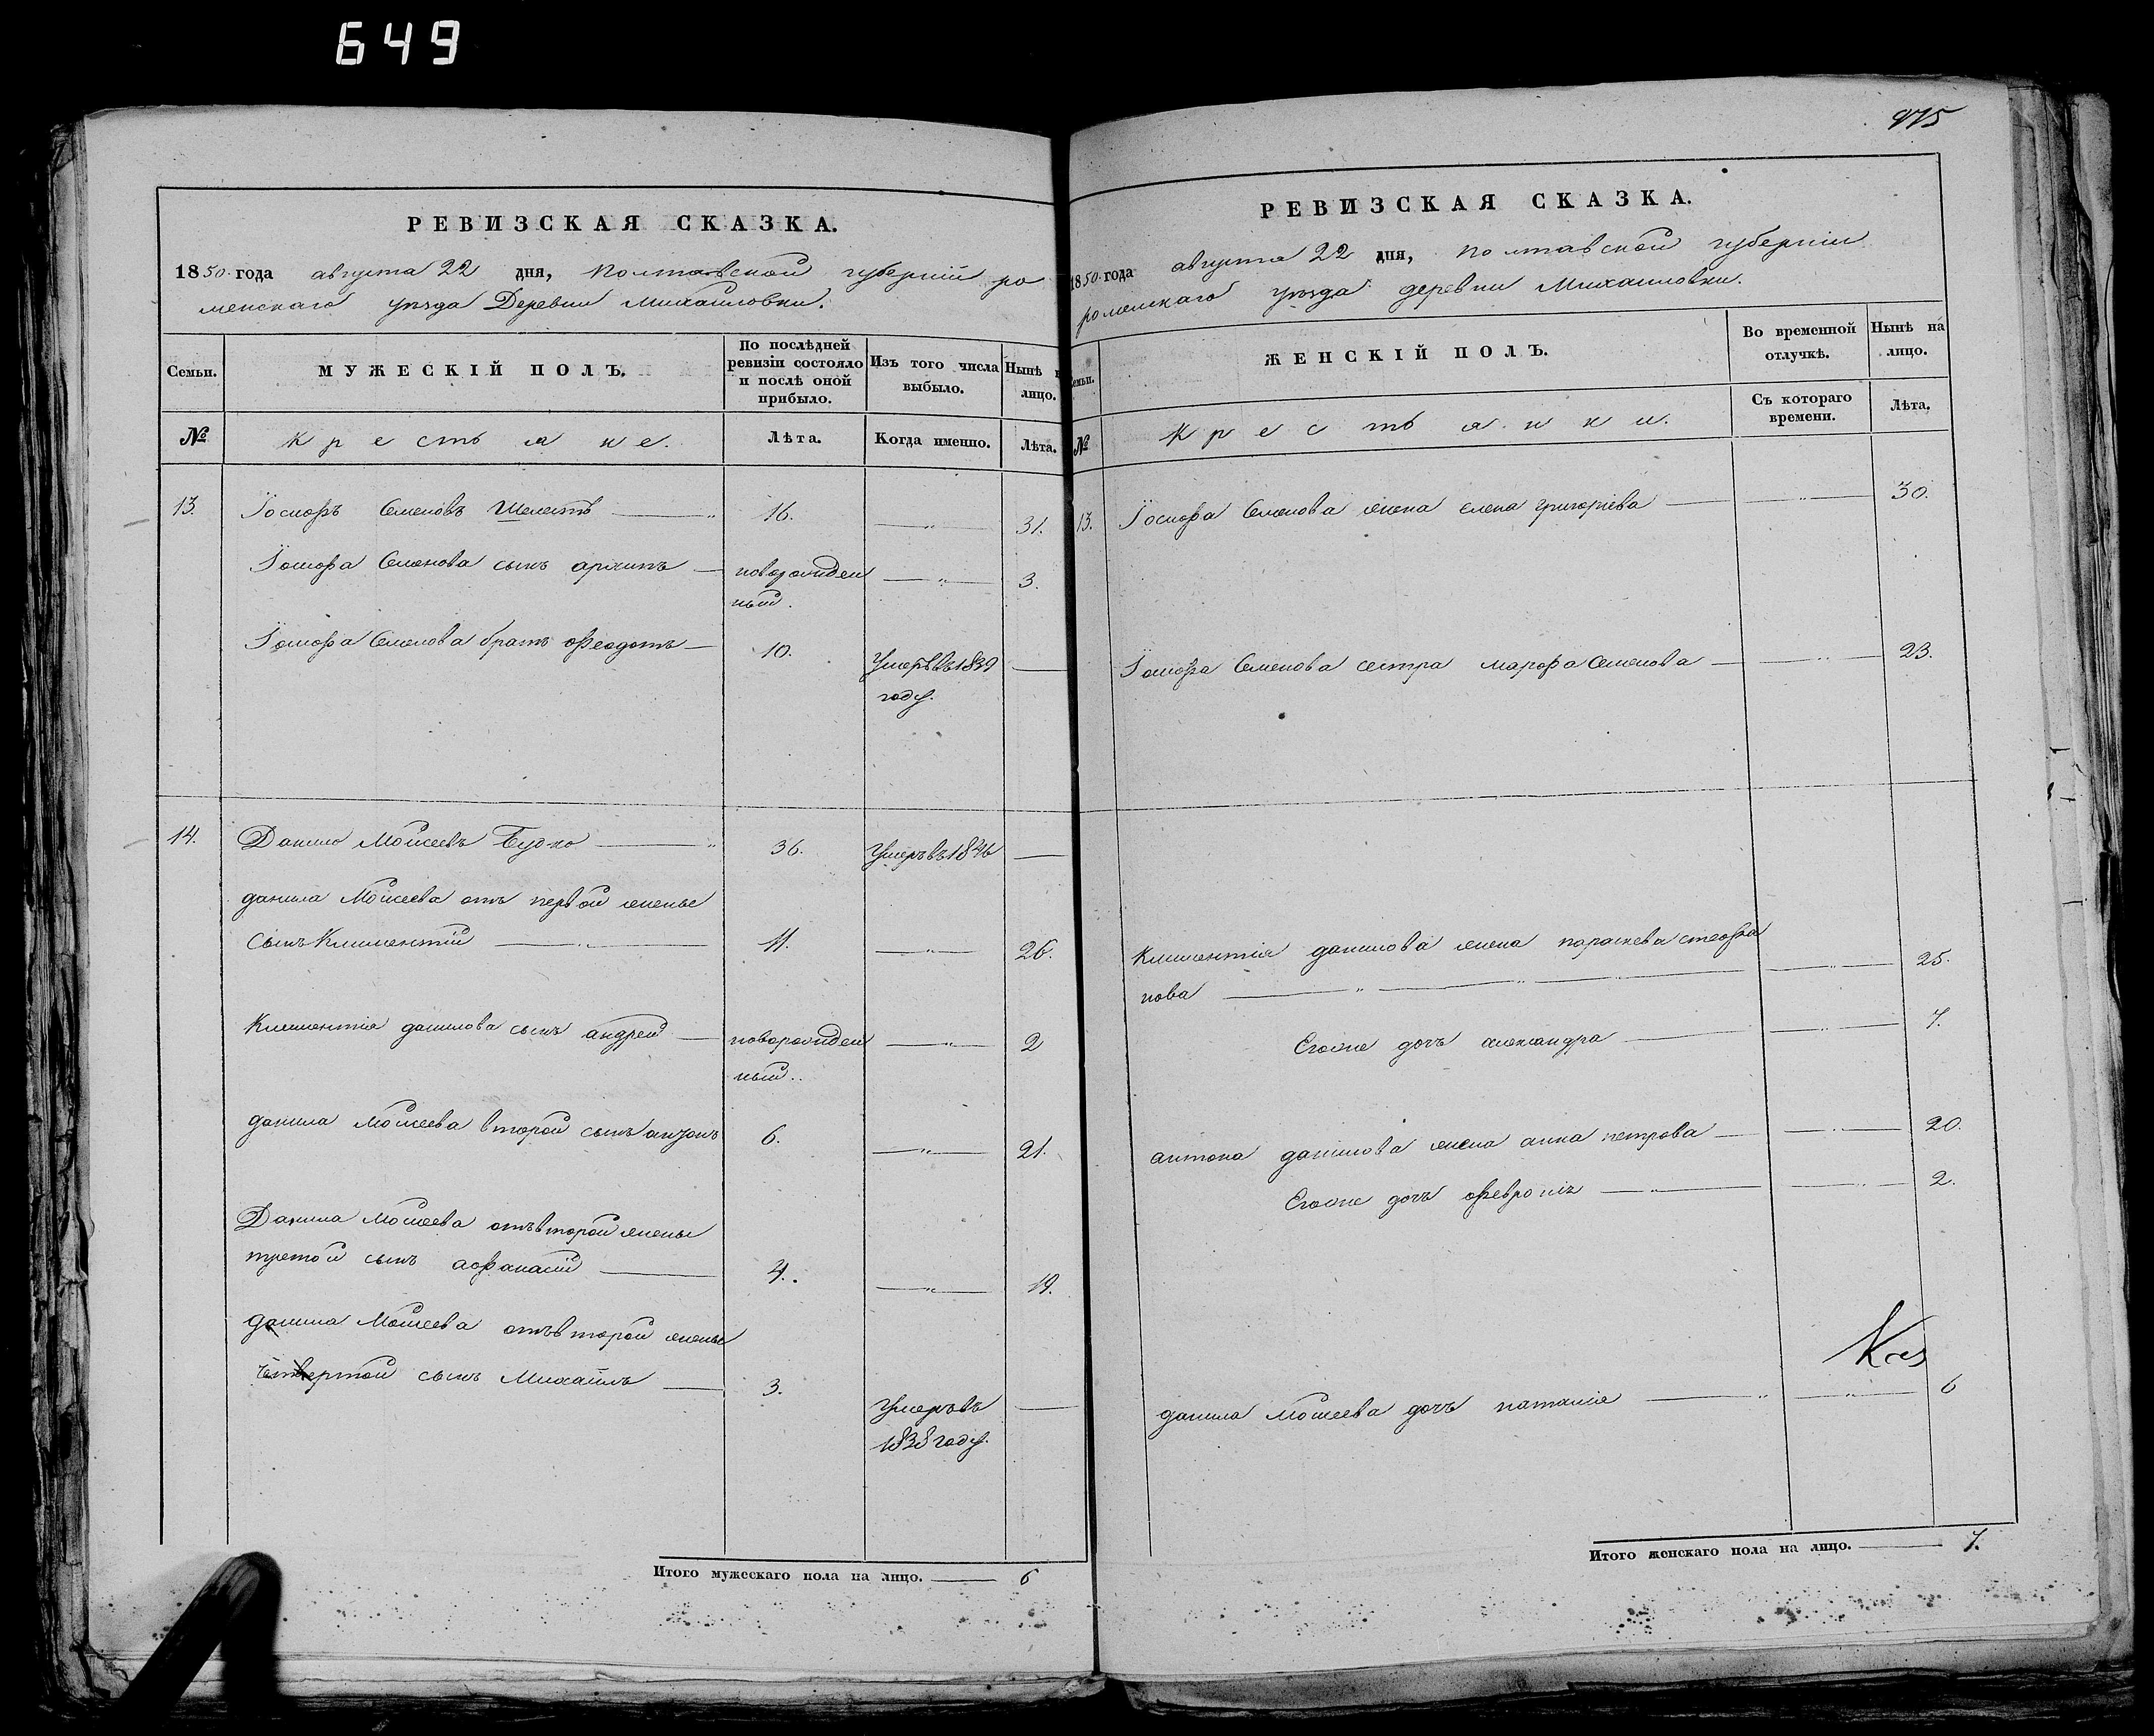 649
975
РЕВИЗСКАЯ СКАЗКА.
1850 года августа 22 дня, Полтавской губерніи ро
менскаго уѣзда Деревни Михайловки.
Семьи.
МУЖЕСКІЙ ПОЛЪ.
По послѣдней ревизіи состояло и послѣ оной прибыло.
Изъ того числа выбыло.
Нынѣ лицо.
№
Крестьяне.
Лѣта.
Когда именно.
Лѣта.
13. Іосифъ Семеновъ Шелестъ 16. 31.
Іосифа Семенова сынъ архипъ новорожден 3.
ный.
Іосифа Семенова братъ Феодотъ 10. Умеръ въ 1839
году.
14. Данило Моисеевъ Будко 36. Умеръ въ 1846
данила Моисеева отъ первой жены
сынъ Климентій 11. 26.
Климентія данилова сынъ андрей новорожден 2
ный.
данила Моисеева второй сынъ антонъ 6. 21.
Данила Моисеева отъ второй жены
третой сынъ афанасій 4. 19.
данила Моисеева отъ второй жены
четвертой сынъ Михаилъ 3. Умеръ въ
1838 году.
Итого мужескаго пола на лицо. 6
РЕВИЗСКАЯ СКАЗКА.
1850 года августа 22 дня, полтавской губерніи
роменскаго уѣзда деревни Михайловки.
Семьи.
ЖЕНСКІЙ ПОЛЪ.
Во временной отлучкѣ.
Нынѣ на лицо.
№
Крестьянки.
Съ котораго времени.
Лѣта.
13. Іосифа Семенова жена елена григоріева 30.
Іосифа Семенова сестра марфа Семенова 23.
Климентія данилова жена параскева стефа
нова 25.
Егоже дочь александра 7.
антона данилова жена анна петрова 20.
Егоже дочь Февронія 2.
данила Моисеева дочь наталія 6
Итого женскаго пола на лицо. 7.